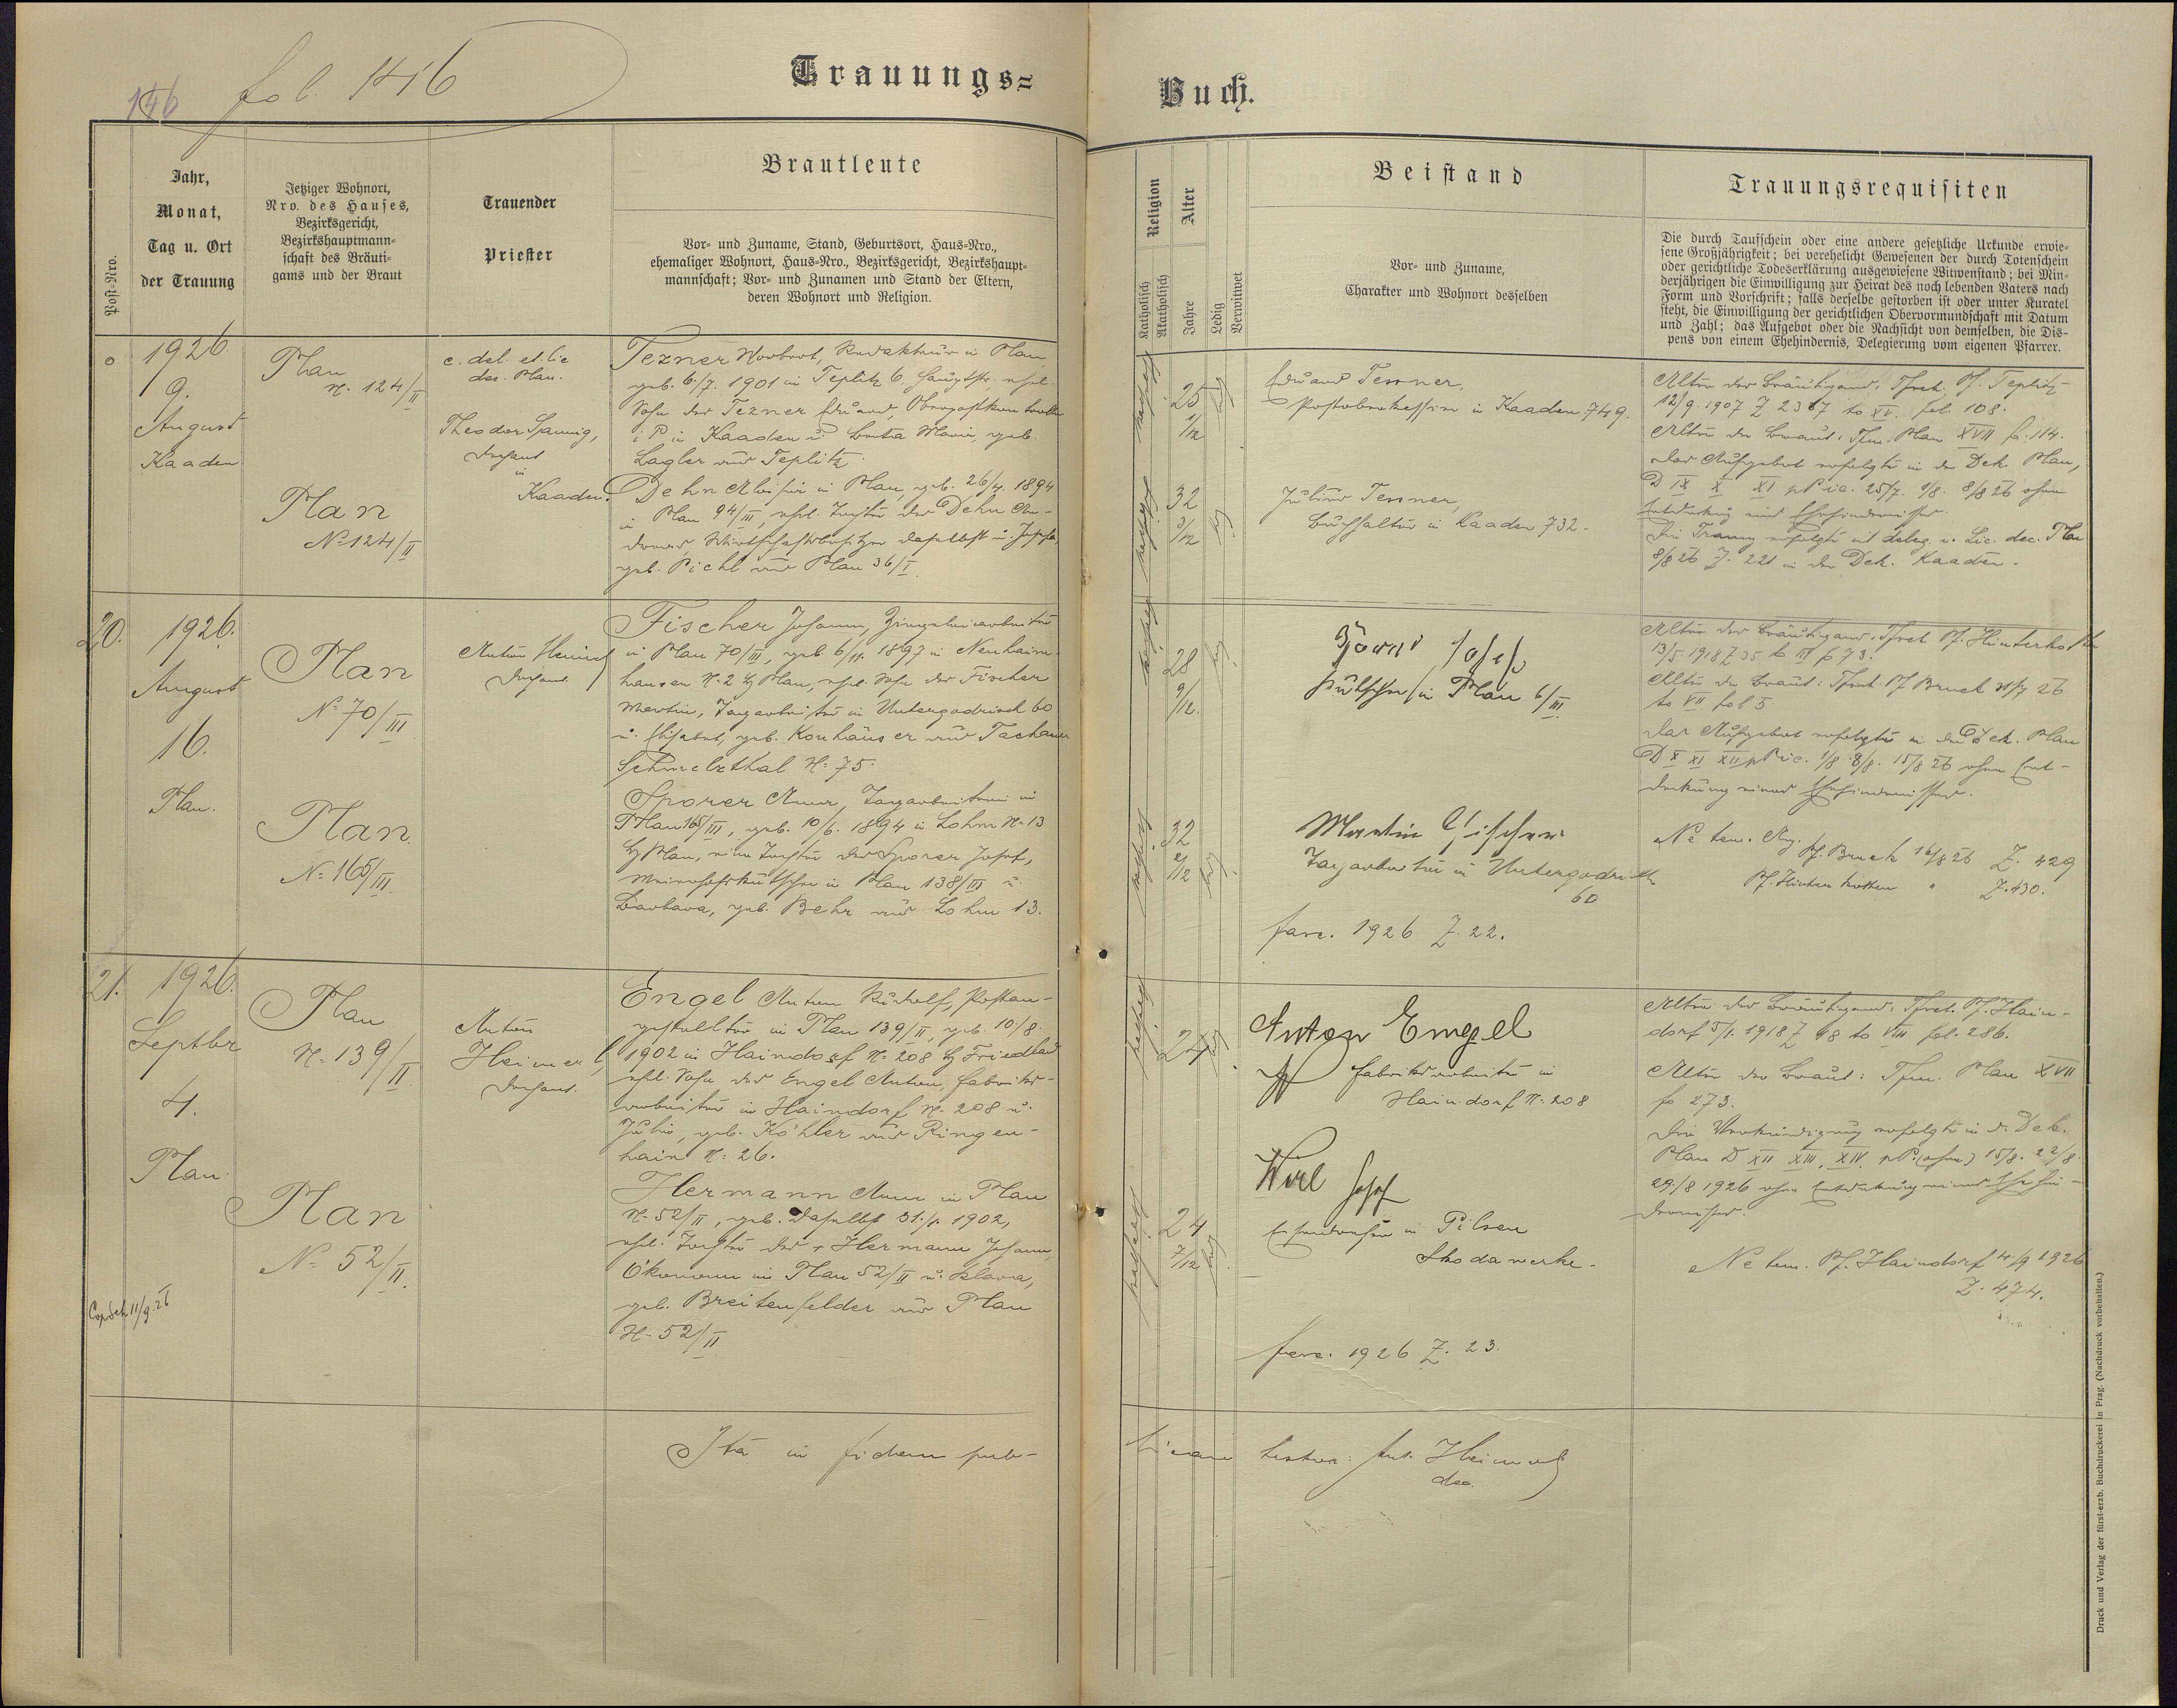 146
fol. 146
Trauungs=
Buch.
Post=Nro.
Jahr,
Monat,
Tag u. Ort
der Trauung
Jetziger Wohnort,
Nro. des Hauses,
Bezirksgericht,
Bezirkshauptmann=
schaft des Bräuti=
gams und der Braut
Trauender
Priester
Brautleute
Vor= und Zuname, Stand, Geburtsort, Haus=Nro.,
ehemaliger Wohnort, Haus=Nro., Bezirksgericht, Bezirkshaupt=
mannschaft; Vor= und Zunamen und Stand der Eltern,
deren Wohnort und Religion.
Religion
Katholisch
Akatholisch
Alter
Jahre
Ledig
Verwitwet
Beistand
Vor= und Zuname,
Charakter und Wohnort desselben
Trauungsrequisiten
Die durch Taufschein oder eine andere gesetzliche Urkunde erwie=
sene Großjährigkeit; bei verehelicht Gewesenen der durch Totenschein
oder gerichtliche Todeserklärung ausgewiesene Witwenstand; bei Min=
derjährigen die Einwilligung zur Heirat des noch lebenden Vaters nach
Form und Vorschrift; falls derselbe gestorben ist oder unter Kuratel
steht, die Einwilligung der gerichtlichen Obervormundschaft mit Datum
und Zahl; das Aufgebot oder die Nachsicht von demselben, die Dis=
pens von einem Ehehindernis, Delegierung vom eigenen Pfarrer.
o
1926
9.
August
Kaaden
Plan
N. 124/II
Plan
No 124/II
c. del. et lic
dec. Plan.
Theodor
Dechant
in
Kaaden.
Tezner Norbert, Redakteur in Plan,
geb. 6./7. 1901 in Teplitz 6, Hauptstr. ehel.
Sohn des Tezner Eduard,
i P. in Kaaden u. Maria, geb.
Lagler aus Teplitz.
Dehn Aloisia in Plan, geb. 26/4. 1894
in Plan 94/III, ehel. Tochter des Dehn An-
dreas, Wirtschaftsbesitzer daselbst u. Josefa,
geb. Pichl aus Plan 36/I
25
1/12
32
3/12
Eduard Tessner,
in Kaaden 749.
Julius Tessner,
Buchhalter in Kaaden 732.
Alter des Bräutigams: Tfsch. Pf. Teplitz
12/9. 1907 Z 2367 to XV. fol. 108.
Alter der Braut: Tfm. Plan XVII fo. 114.
Das Aufgebot erfolgte in der Dek. Plan,
D IX X XI p P ic. 25/7. 1/8. 8/8 26 ohne
Entdeckung eines Ehehindernisses.
Die Trauung erfolgte cd deleg. u. Lic. dec. Plan
8/8 26 Z. 221 in der Dek. Kaaden.
20.
1926.
August
16.
Plan.
Plan
No 70/III
Plan
No 165/III.
Anton Heimerl
Dechant
Fischer Johann,
in Plan 70/III, geb. 6/11. 1897 in Neuhäim-
hausen N. 2 bei Plan, ehel. Sohn des Fischer
Martin, Tagarbeiter in Untergodrisch 60
u. Elisabet, geb. Konhäuser aus Tachauer
Schmelzthal N. 75.
Sporer Anna, Tagarbeiterin in
Plan 165/III, geb. 10/6. 1894 in Lohm N. 13
bei Plan, eine Tochter des Sporer Josef,
Meierhofskutscher in Plan 138/III u.
Barbara, geb. Behr aus Lohm 13.
28
9/12.
32
2/12
Josef
Kutscher in Plan 6/III
Martin Fischer
Tagarbeiter in Untergodrisch
60
fasc. 1926 Z. 22.
Alter des Bräutigams: Tfsch. Pf. Hinterkotten
13/5. 1918 Z 35 to III fo 73.
Alter der Braut: Tfsch. Pf Bruck 31/7 26
to VII fol 5
Das Aufgebot erfolgte in der Dek. Plan
D X XI XII p P ic. 1/8. 8/8. 15/8 26 ohne Ent-
deckung eines Ehehindernisses.
Ne tem. Ang. Pf. Bruck 16/8 26 Z. 429
Pf. Hinterkotten " Z. 430.
21.
1926.
Septbr
4.
Plan
Plan
N. 139/II.
Plan
No 52/II.
11/9. 26
Anton
Heimerl,
Dechant.
Engel Anton Rudolf, Postan-
gestellter in Plan 139/II, geb. 10/8.
1902 in Haindorf N. 208 bei Friedland
ehel. Sohn des Engel Anton, Fabriks-
arbeiter in Haindorf N. 208 u.
Julie, geb. Köhler aus Ringen-
hain N. 26.
Hermann Anna in Plan
N. 52/II, geb. daselbst 31./1. 1902,
ehel. Tochter des + Hermann Johann,
Ökonom in Plan 52/II u. Klara,
geb. Breitenfelder aus Plan
N. 52/II
24.
24
7/12
Anton Engel
Fabriksarbeiter in
Haindorf N. 208
Wirl Josef
Eisendreher in Pilsen
Skodawerke.
fasc. 1926 Z. 23.
Alter des Bräutigams: Tfsch. Pf. Hain-
dorf 5/1. 1918 Z 98 to VIII fol. 286.
Alter der Braut: Tfm. Plan XVII
fo 273.
Die Verkündigung erfolgte in d. Dek.
Plan D XII XIII, XIV. p P. (ohne) 15/8. 22/8.
29./8 1926 ohne Entdeckung eines Ehehin-
dernisses.
Ne tem. Pf. Haindorf 14/9 1926
Z. 474.
Ita in fidem pub-
licam testor: Ant. Heimerl
dec.
Druck und Verlag der fürst-erzb. Buchdruckerei in Prag. (Nachdruck vorbehalten.)